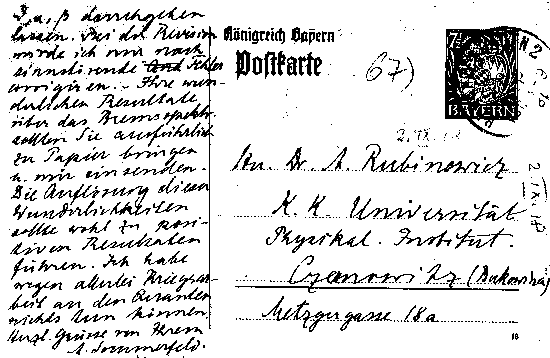 D. u. β durchgehen
lassen. Bei der Revision
würde ich nur noch
sinnstörende Fehler
corrigieren. – Ihre wun-
derlichen Resultate
über das Bremsspektr.
sollten Sie ausführlich
zu Papier bringen
u. mir einsenden.
Die Auflösung dieser
Wunderlichkeiten
sollte wohl zu posi-
tiven Resultaten
führen. Ich habe
wegen allerlei Kriegsar-
beit an den Quanten
nichts tun können.
Herzl. Grüsse von Ihrem
A. Sommerfeld.
Königreich Bayern
Postkarte
67)
7½
BAYERN
2. IX. 18
An Dr A. Rubinowicz
K. K. Universität
Physikal. Institut.
Czernowitz (Bukowina)
Metzgergasse 18a
18